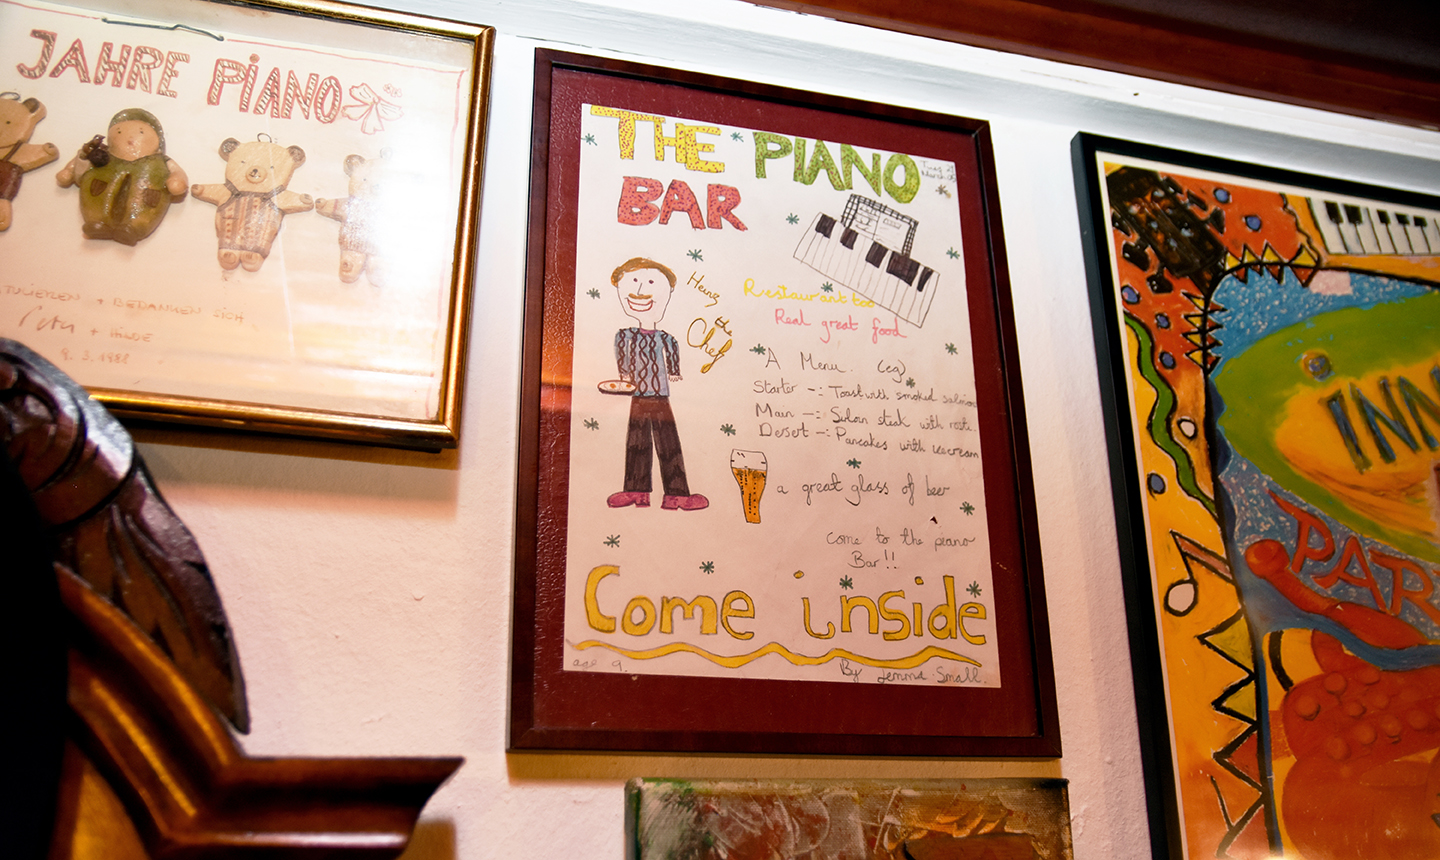 JAHRE PIANO
BEDANKEN SICH
Peter + HILDE
9. 3. 1988
THE PIANO
BAR
Heinz the
Chef
Restaurant too
Real great food
A Menu. (eg)
Starter -: Toast with smoked salmon
Main -: Sirloin steak with rosti.
Desert -: Pancakes with icecream
a great glass of beer
come to the piano
Bar!!
Come inside
age 9.
By Jemma Small.
INN
PAR